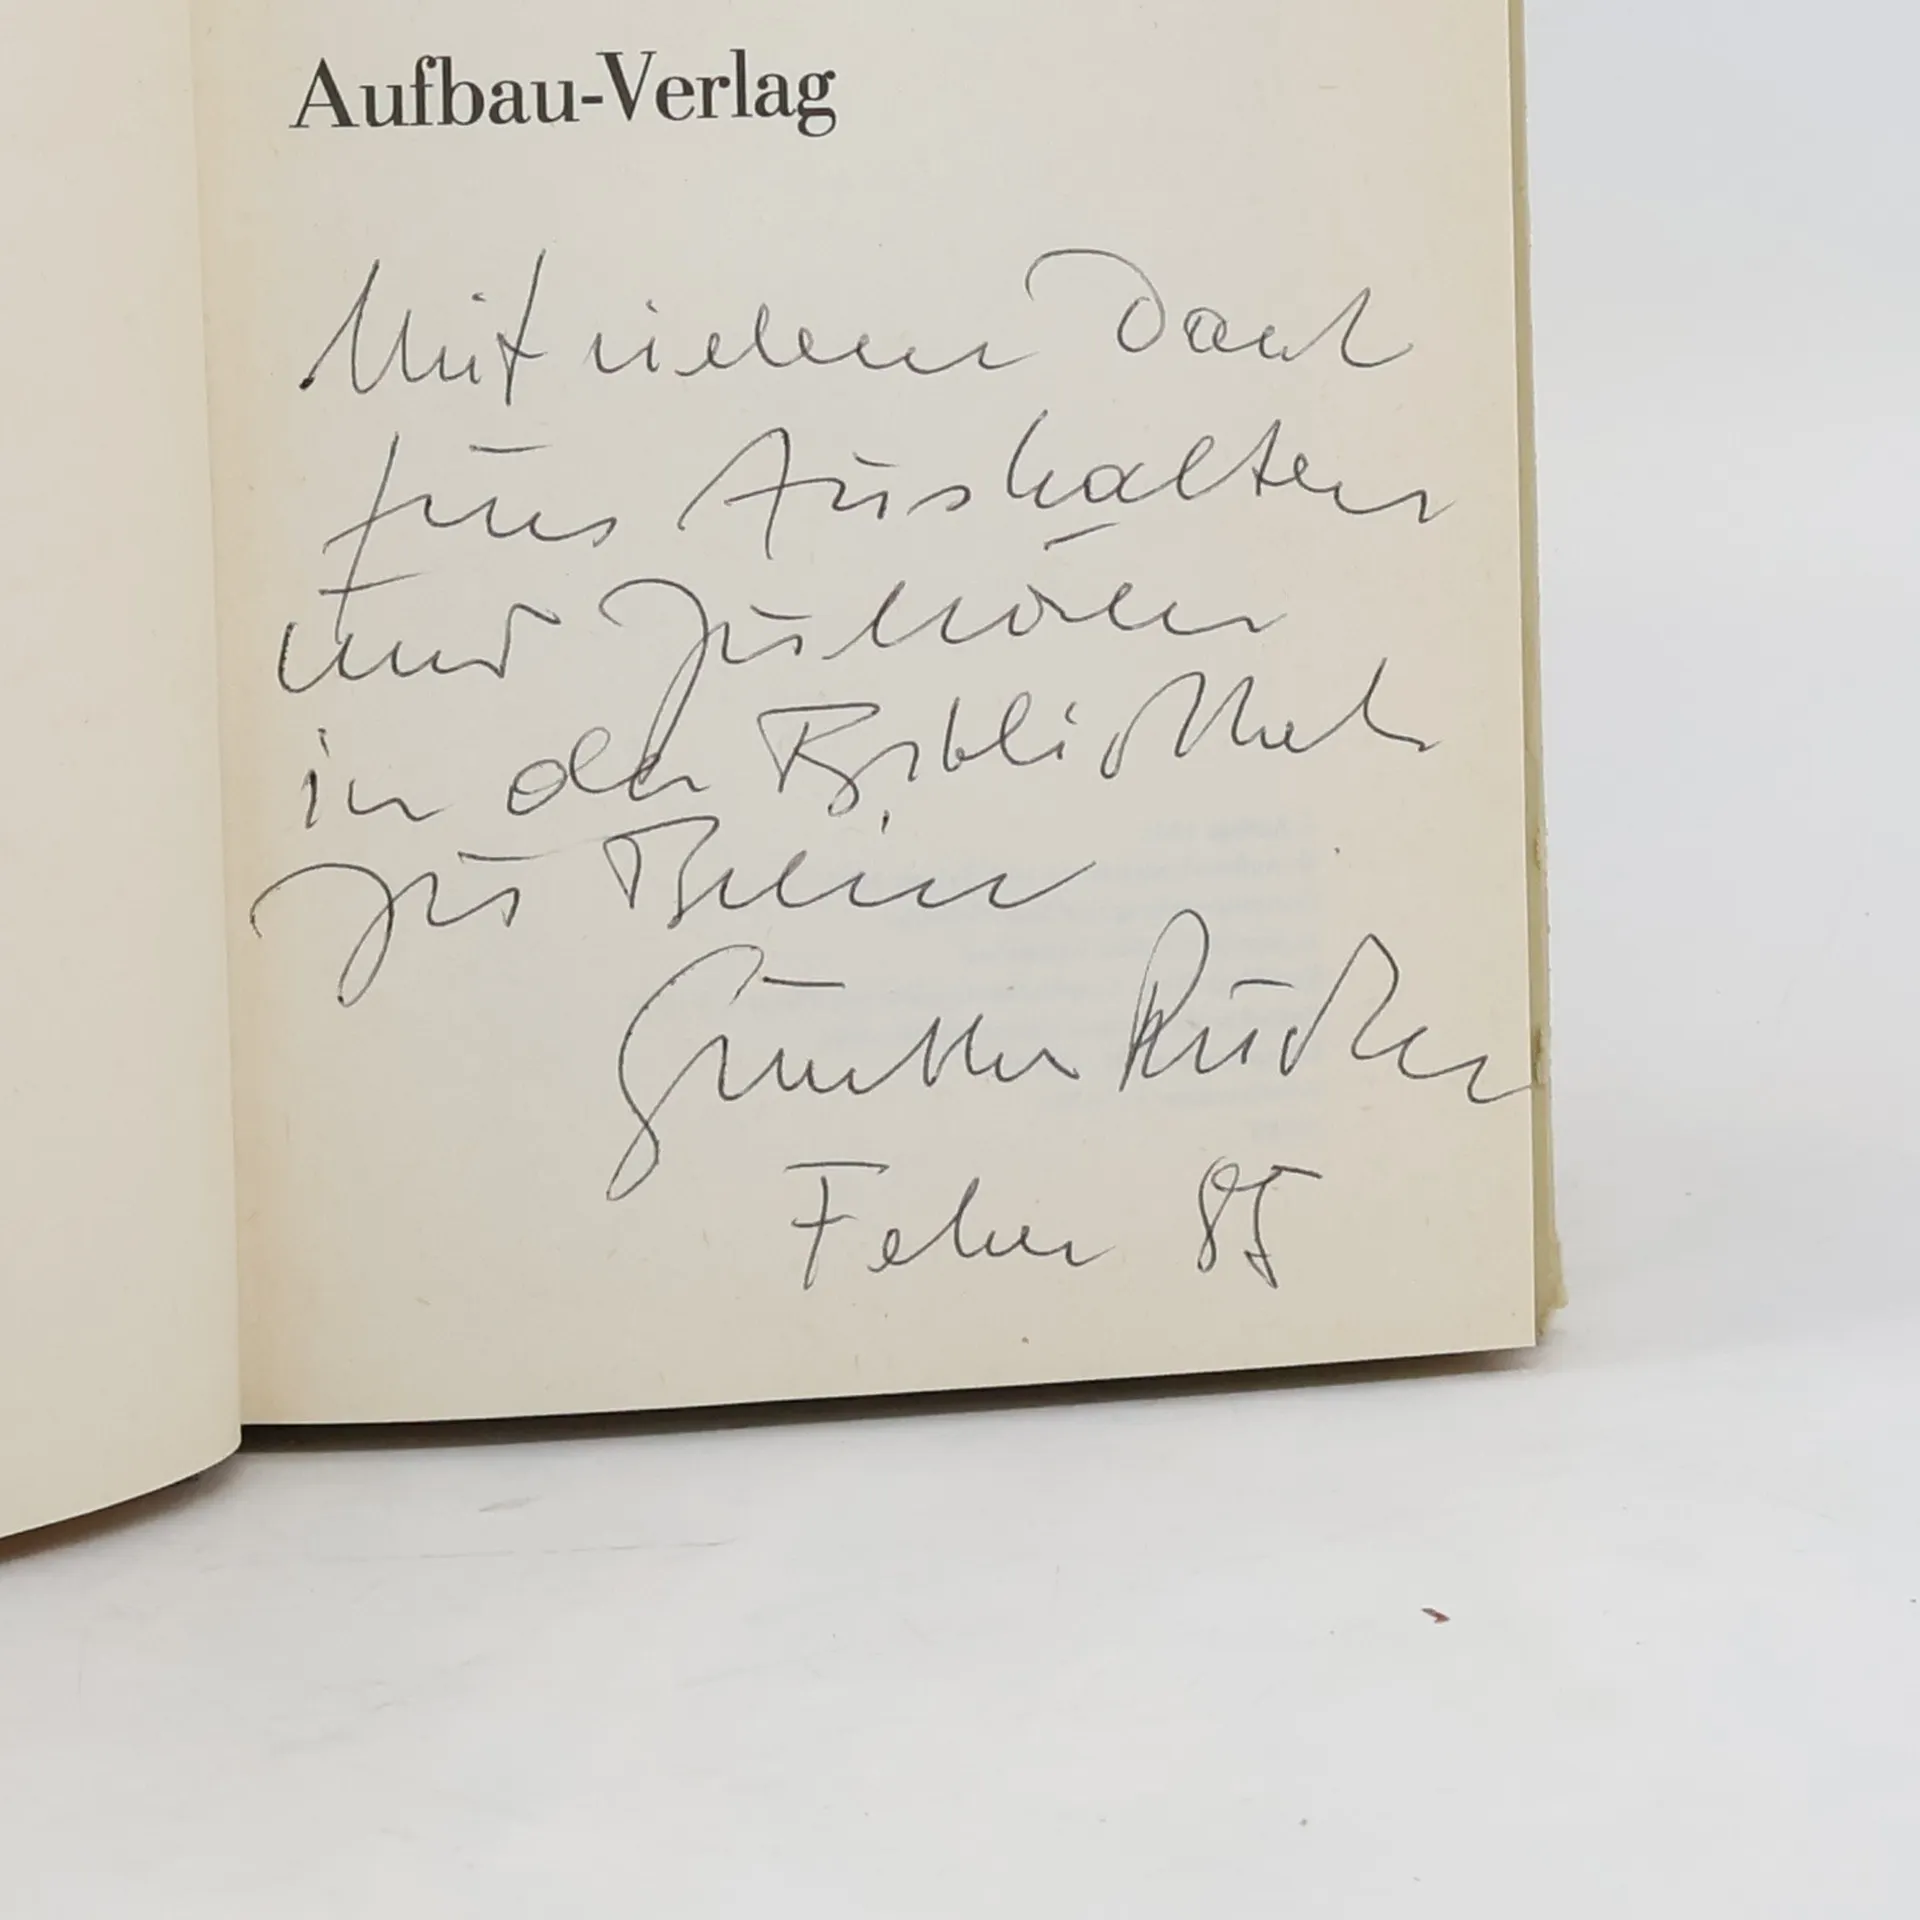 Aufbau-Verlag
Mit vielem Dank
fürs Aushalten
und Zuhören
in der Bibliothek
zu
Günther Rücker
Feber 85